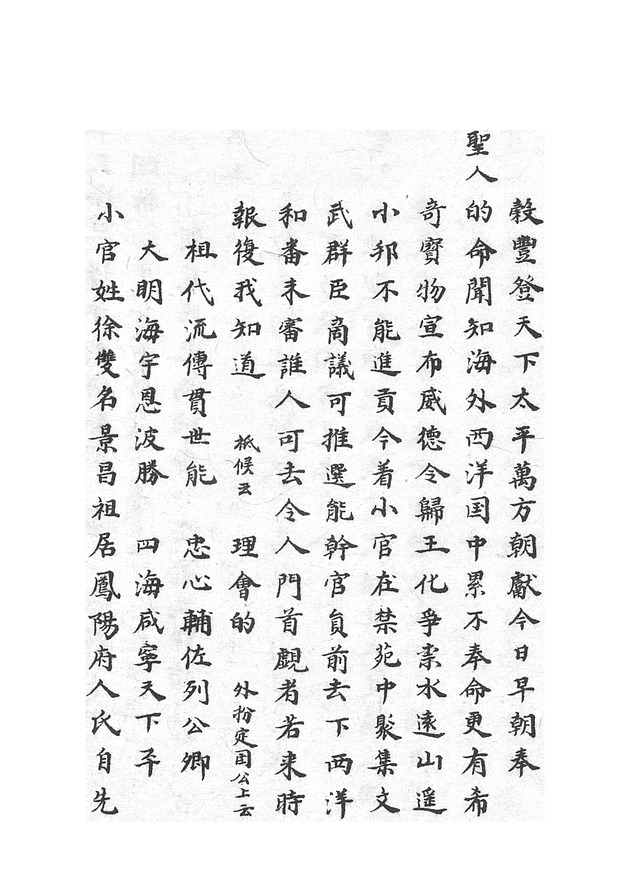 穀豐登天下太平萬方朝獻今日早朝奉
聖人的命聞知海外西洋囯中累不奉命更有希
奇寳物宣布威德令歸王化爭柰水遠山遥
小邦不能進貢今着小官在禁苑中聚集文
武群臣啇議可推選能幹官員前去下西洋
和番未審誰人可去令人門首覷者若来時
報復我知道　祗候云　理會的　外扮定囯公上云
祖代流傳貫世能　忠心輔佐列公卿
大明海宇恩波勝　四海咸寧天下平
小官姓徐雙名景昌祖居鳳陽府人氏自先